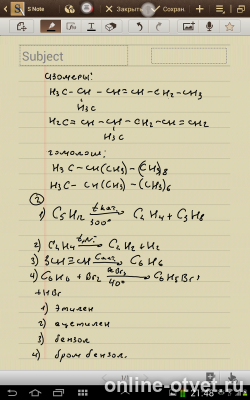 S Note
Закрыть
Сохран.
Subject
изомеры:
H3C - CH - CH = CH - CH2 - CH3
H3C
H2C = CH - CH - CH2 - CH = CH2
H3C
гомологи:
H3C - CH(CH3) - (CH3)8
H3C - CH(CH3) - (CH3)6
2
1) C5H12 t, кат 300° C2H4 + C3H8
2) C2H4 t, Ni C2H2 + H2
3) 3CH≡CH Cакт C6H6
4) C6H6 + Br2 40° C6H5Br,
+ HBr
1) этилен
2) ацетилен
3) бензол
4) бром бензол.
21:48
online-otvet.ru